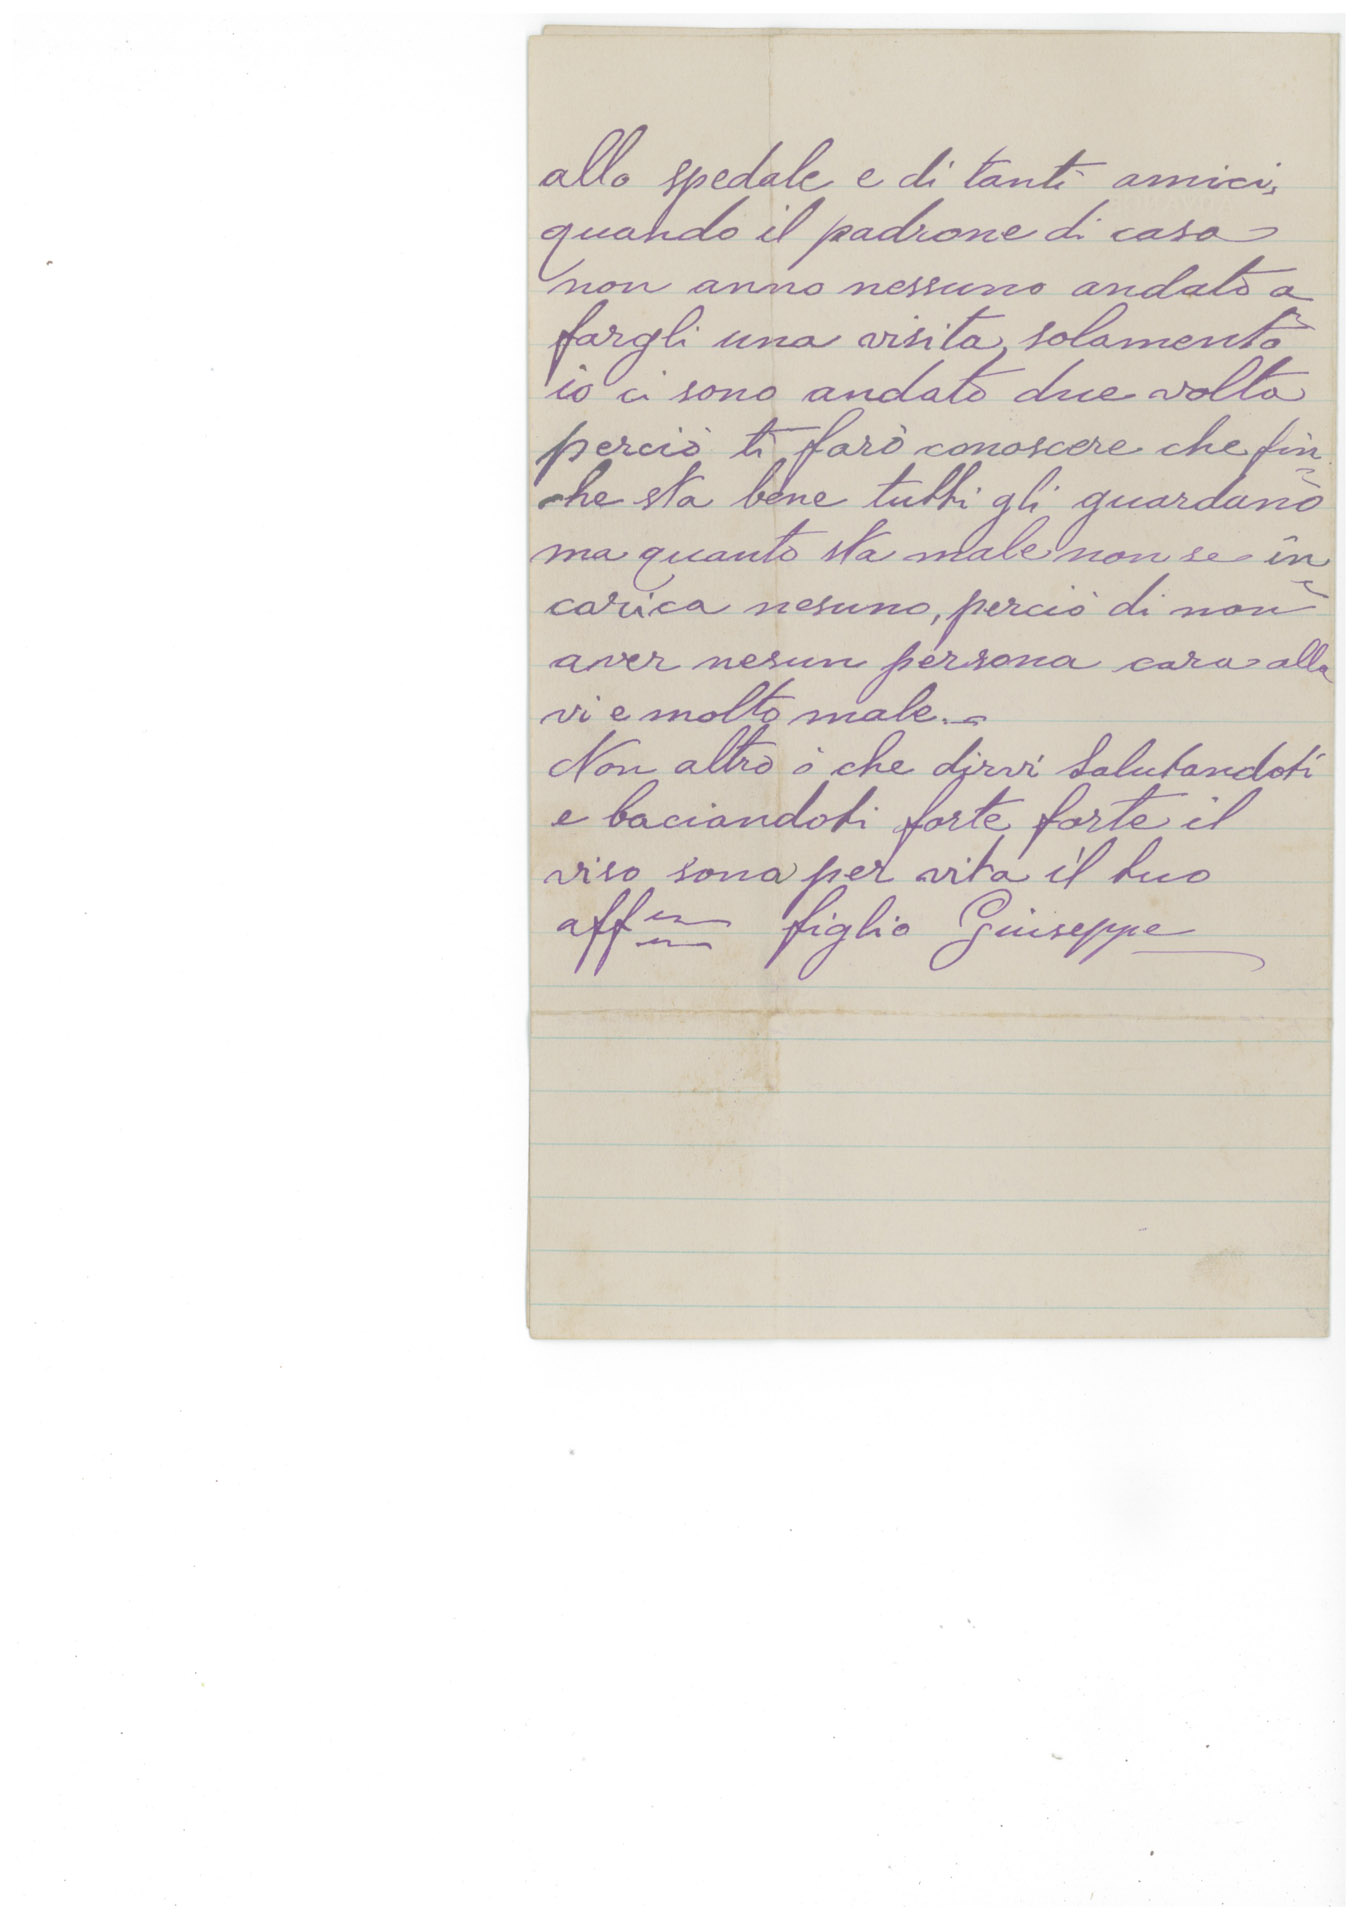 allo spedale e di tanti amici,
quando il padrone di casa
non anno nessuno andato a
fargli una visita, solamento
io ci sono andato due volta
perciò ti farò conoscere che fin
che sta bene tutti gli guardano
ma quanto sta male non se in
carica nesuno, perciò di non
aver nesun persona cara alla
vi e molto male.
Non altro ò che dirvi Salutandoti
e baciandoti forte forte il
viso sona per vita il tuo
aff figlio Giuseppe